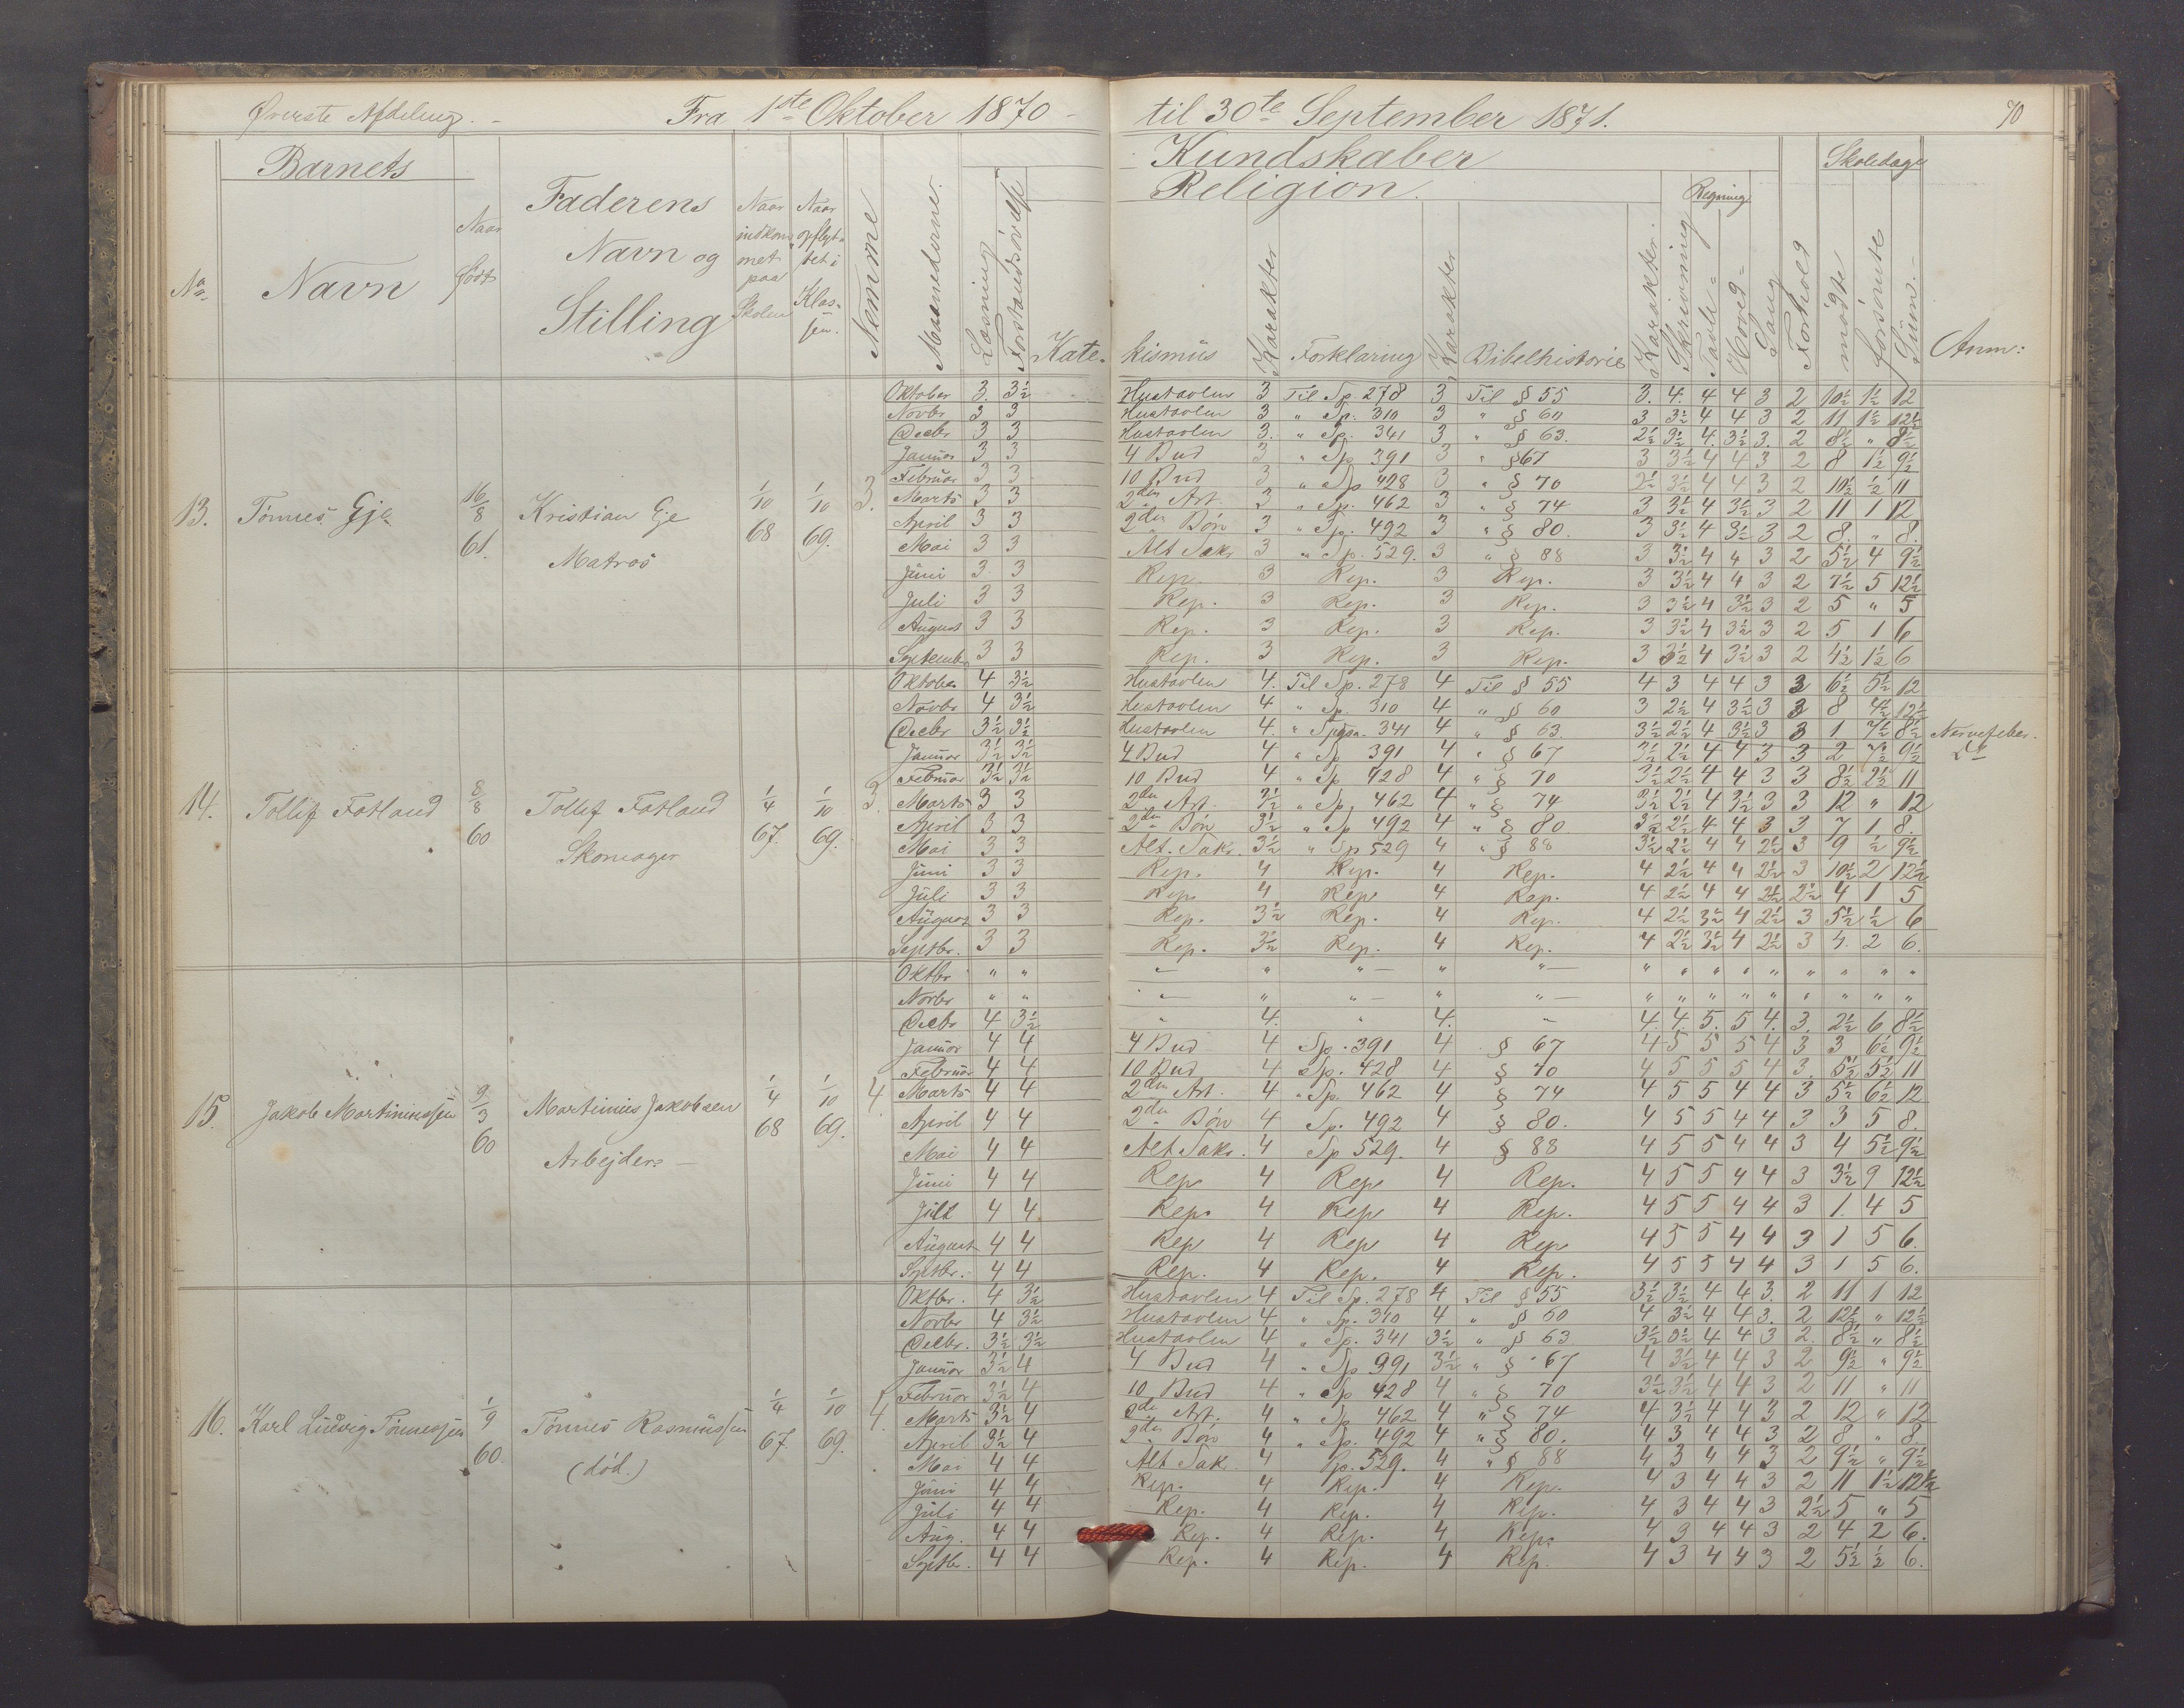 Øverste Afdeling. - Fra 1ste Oktober 1870 - til 30te September 1871. 70
Barnets Kundskaber Skoledage
Religion. Regning
No Navn Naar født Faderens Navn og Stilling Naar indkommet paa Skolen Naar opflyttet i Klassen. Nemme Maanederne. Læsning Forstandsøvelse Kate- kismus Karakter Forklaring Karakter Bibelhistorie Karakter. Skrivning Tavle- Hoved- Sang Forhold mødte forsømte Sum. Anm:
13. Tønnes Eje 16/8 61. Kristian Eje Matros 1/10 68 1/10 69. 3.
Oktober 3. 3½ Hustavlen 3 Til Sp. 278 3 Til § 55 3. 4. 4 4 3 2 10½ 1½ 12
Novbr 3 3 Hustavlen 3 " Sp. 310 3 " § 60 3 3½ 4 4 3 2 11 1½ 12½
Decbr 3 3 Hustavlen 3. " Sp. 341 3 " § 63. 2½ 3½ 4. 3½ 3. 2 8½ " 8½
Januar 3 3 4 Bud 3 " Sp 391 3 " § 67 3 3½ 4 4 3 2 8 1½ 9½
Februar 3 3 10 Bud 3 " Sp 428 3 " § 70 2½ 3½ 4 4 3 2 10½ ½ 11
Marts 3 3 2den Art. 3 " Sp. 462 3 " § 74 3 3½ 4 3½ 3 2 11 1 12
April 3 3 2den Bøn 3 " Sp. 492 3 " § 80. 3 3½ 4 3½ 3 2 8. " 8.
Mai 3 3 Alt. Sakr 3 " Sp. 529. 3 " § 88 3 3½ 4 4 3 2 5½ 4 9½
Juni 3 3 Rep. 3 Rep. 3 Rep. 3 3½ 4 4 3 2 7½ 5 12½
Juli 3 3 Rep. 3 Rep. 3 Rep. 3 3½ 4 3½ 3 2 5 " 5
August 3 3 Rep. 3 Rep. 3 Rep. 3 3½ 4 3½ 3 2 5 1 6
Septembr 3 3 Rep. 3 Rep. 3 Rep. 3 3½ 4 3½ 3 2 4½ 1½ 6
14. Tollif Fatland 8/8 60 Tollif Fatland Skomager 1/4 67. 1/10 69. 3.
Oktober 4 3½ Hustavlen 4. Til Sp. 278 4 Til § 55 4 3 4 4 3 3 6½ 5½ 12
Novbr 4 3½ Hustavlen 4 " Sp. 310 4 " § 60 3 2½ 4 3½ 3 3 8 4½ 12½
Decbr 3½ 3½ Hustavlen 4. " 341 4 " § 63. 3½ 2½ 4 3½ 3 3 1 7½ 8½ Nervefeber.
Januar 3½ 3½ 4 Bud 4 " Sp 391 4 " § 67 3½ 2½ 4 4 3 3 2 7½ 9½ Do
Februar 3½ 3½ 10 Bud 4 " Sp 428 4 " § 70 3½ 2½ 4 4 3 3 8½ 2½ 11
Marts 3 3 2den Art. 3½ " Sp. 462 4 " § 74 3½ 2½ 4 3½ 3 3 12 " 12
April 3 3 2den Bøn 3½ " Sp 492 4 " § 80. 3½ 2½ 4 4 3 3 7 1 8.
Mai 3 3 Alt. Sakr. 3½ " Sp 529 4 " § 88 3½ 2½ 4 4 2½ 3 9 ½ 9½
Juni 3 3 Rep. 4 Rep. 4 Rep. 4 2½ 4 4 2½ 3 10½ 2 12½
Juli 3 3 Rep. 4 Rep 4 Rep. 4 2½ 4 4 2½ 2½ 4 1 5
August 3 3 Rep. 3½ Rep. 4 Rep. 4 2½ 3½ 4 2½ 3 5½ ½ 6
Septbr. 3 3 Rep. 3½ Rep. 4 Rep. 4 2½ 3½ 4 2½ 3 4. 2 6.
15. Jakob Martiniussen 9/3 60 Martinius Jakobsen Arbejder - 1/4 68 1/10 69. 4
Oktbr " " " — " " — " " — " " " " " " " " "
Novbr " " " — " " — " " — " " " " " " " " "
Decbr 4 3½ " 4. " 4. " 4. 4. 5. 5 4. 3. 2½ 6 8½
Januar 4 4 4 Bud 4 Sp. 391 4 § 67 4 5 5 5 4 3 3 6½ 9½
Februar 4 4 10 Bud 4 Sp. 428 4 § 70 4 5 5 5 4 3. 5½ 5½ 11
Marts 4 4 2den Art. 4 " Sp. 462 4 § 74 4 5 5 4 4 3 5½ 6½ 12
April 4 4 2den Bøn 4 Sp. 492 4 § 80. 4 5 5 4 4 3 3 5 8.
Mai 4 4 Alt Sakr. 4 Sp 529. 4 § 88 4 5 5 4 4 3 4 5½ 9½
Juni 4 4 Rep 4 Rep 4 Rep. 4 5 5 4 4 3 3½ 9 12½
Juli 4 4 Rep. 4 Rep 4 Rep. 4 5 5 4 4 3 1. 4 5
August 4 4 Rep 4 Rep 4 Rep 4 5 5 4 4 3 1 5 6.
Septbr. 4 4 Rep. 4 Rep. 4 Rep. 4 5 5 4 4 3 1 5 6.
16. Karl Ludvig Tønnessen 1/9 60. Tønnes Rasmussen (død.) 1/4 67. 1/10 69. 4.
Oktbr. 4 3½ Hustavlen 4 Til Sp. 278 4 Til § 55 3½ 3½ 4 4 3. 2 11 1 12
Novbr 4 3½ Hustavlen 4 " Sp. 310 4 " § 60 4 3½ 4 4 3. 2 12½ " 12½
Decbr. 3½ 3½ Hustavlen 4 " Sp. 341 3½ " § 63 3½ 3½ 4 4 3 2. 8½ " 8½
Januar 3½ 4 4 Bud 4 " Sp 391 3½ " § 67 4 3½ 4 4 3 2 9½ " 9½
Februar 3½ 4 10 Bud 4 " Sp 428 4 " § 70 3½ 3½ 4 4 3 2 11 " 11
Marts 3½ 4 2de Art. 4 " Sp 462 4 " § 74 4 3½ 4 4 3 2 12 " 12
April 3½ 4 2den Bøn 4 " Sp. 492 4 " § 80. 4 3 4 4 3 2 8 " 8.
Mai 4 4 Alt Sakr. 4 Sp. 529. 4 " § 88 4 3 4 4 3 2 9½ " 9½
Juni 4 4 Rep. 4 Rep. 4 Rep. 4 3 4 4 3 2 11 1½ 12½
Juli 4 4 Rep. 4 Rep. 4 Rep. 4 3 4 4 3 2½ 5 " 5
Aug. 4 4 Rep. 4 Rep. 4 Rep. 4 3 4 4 3 2 4 2 6.
Septbr. 4 4 Rep. 4 Rep. 4 Rep. 4 3 4 4 3 2 5½ ½ 6.